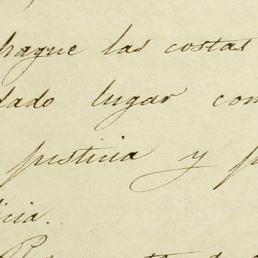 pague las costas
dado lugar con
justicia y p
icia.